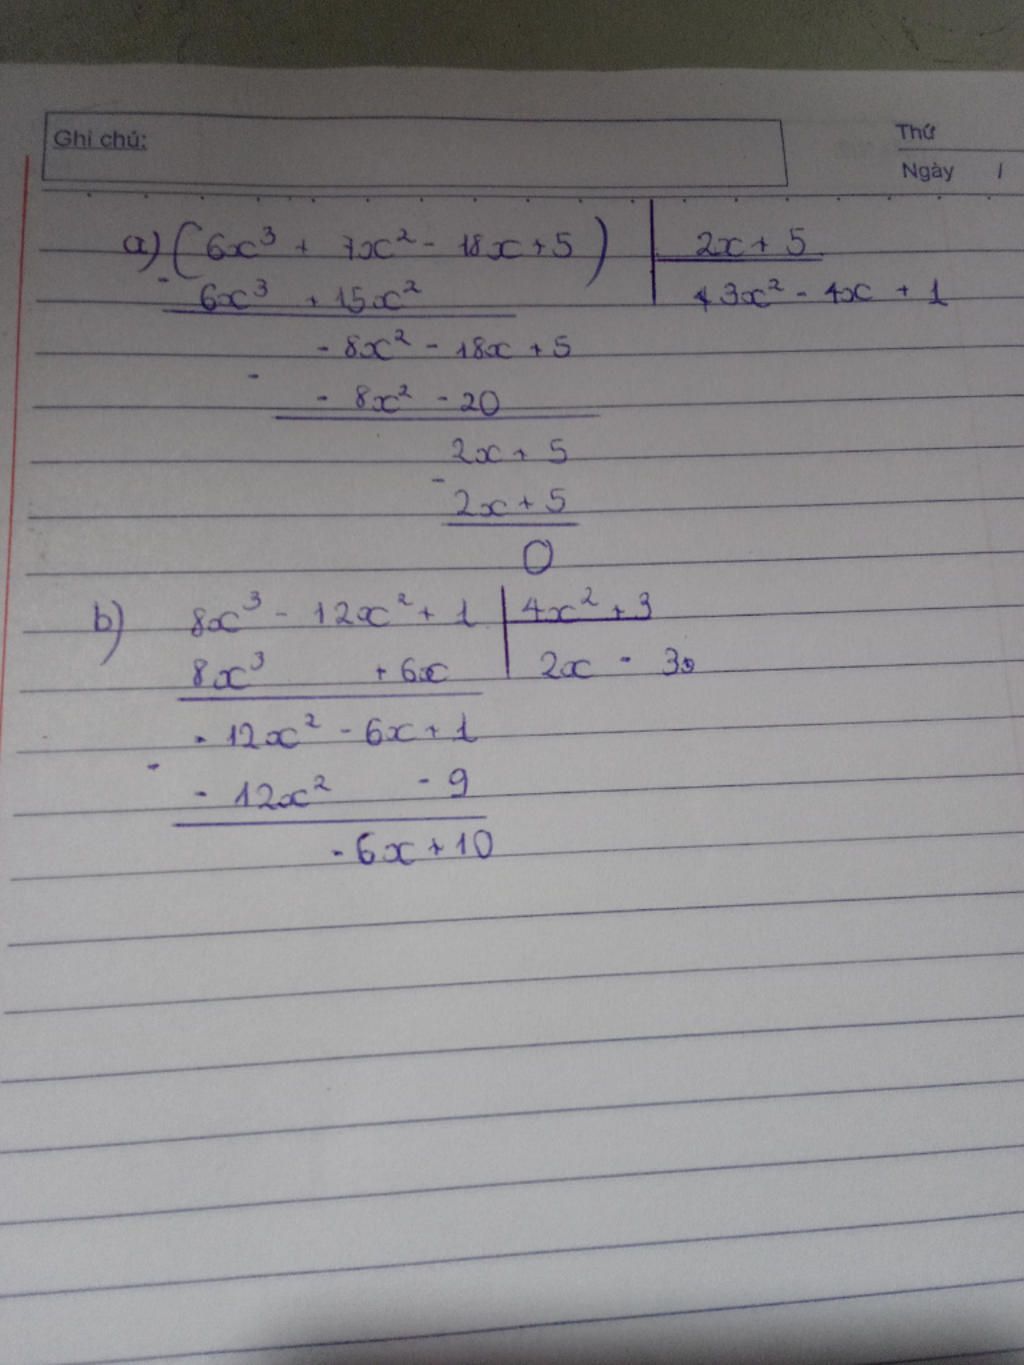 Ghi chú:
Thứ
Ngày /
a) (6x³ + 7x² - 18x + 5) | 2x + 5
- 6x³ + 15x² | 3x² - 4x + 1
- 8x² - 18x + 5
-
- 8x² - 20
2x + 5
-
2x + 5
0
b) 8x³ - 12x² + 1 | 4x² + 3
8x³ + 6x | 2x - 3
- 12x² - 6x + 1
-
- 12x² - 9
- 6x + 10